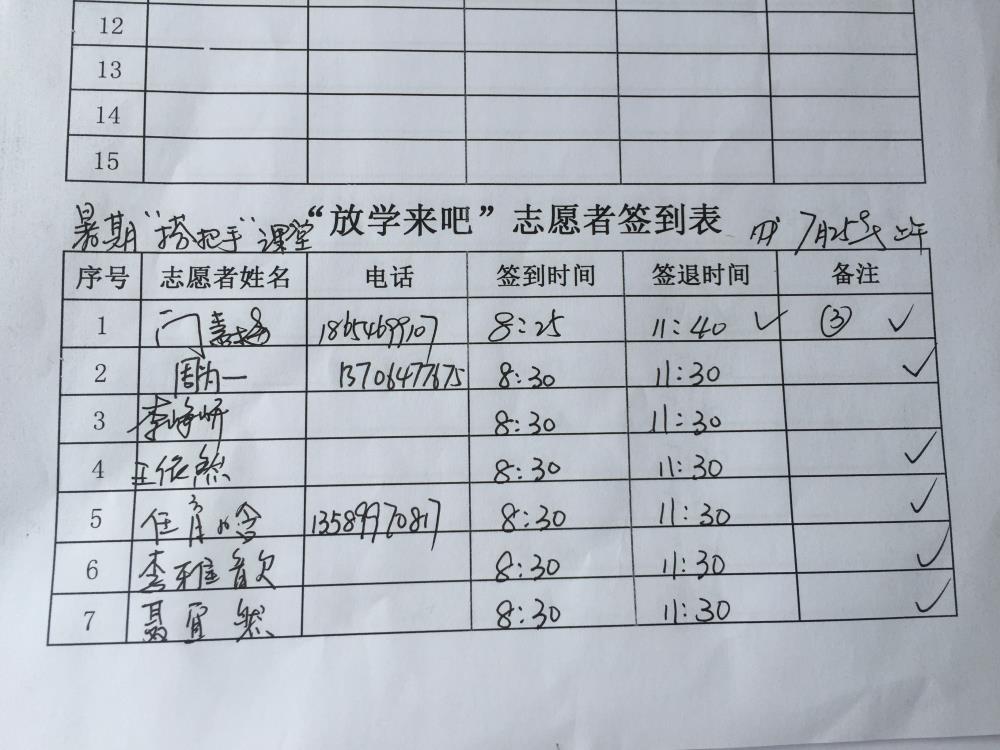 12
13
14
15
暑期"搭把手"课堂 "放学来吧"志愿者签到表 7月25号 上午
序号 志愿者姓名 电话 签到时间 签退时间 备注
1 门 18654699107 8:25 11:40 ✓ ③ ✓
2 周为一 13706477675 8:30 11:30 ✓
3 李峥妍 8:30 11:30
4 王依然 8:30 11:30 ✓
5 任 13589970817 8:30 11:30 ✓
6 李雅 8:30 11:30 ✓
7 聂宜然 8:30 11:30 ✓